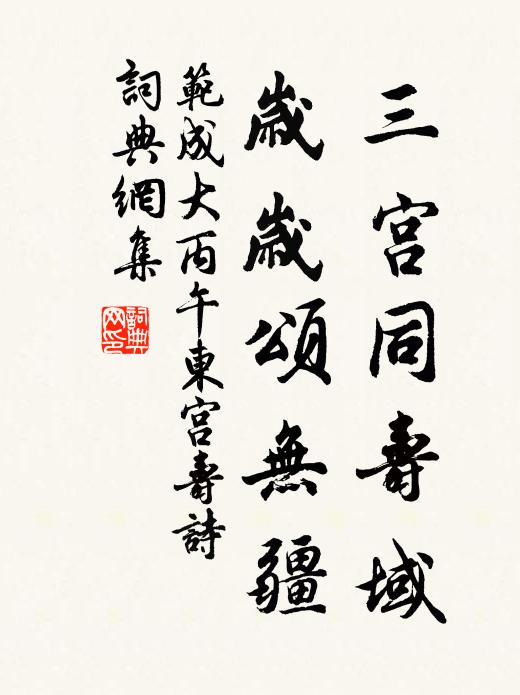 三宮同壽域
歲歲頌無疆
範成大丙午東宮壽詩
詞典網集
詞典网印